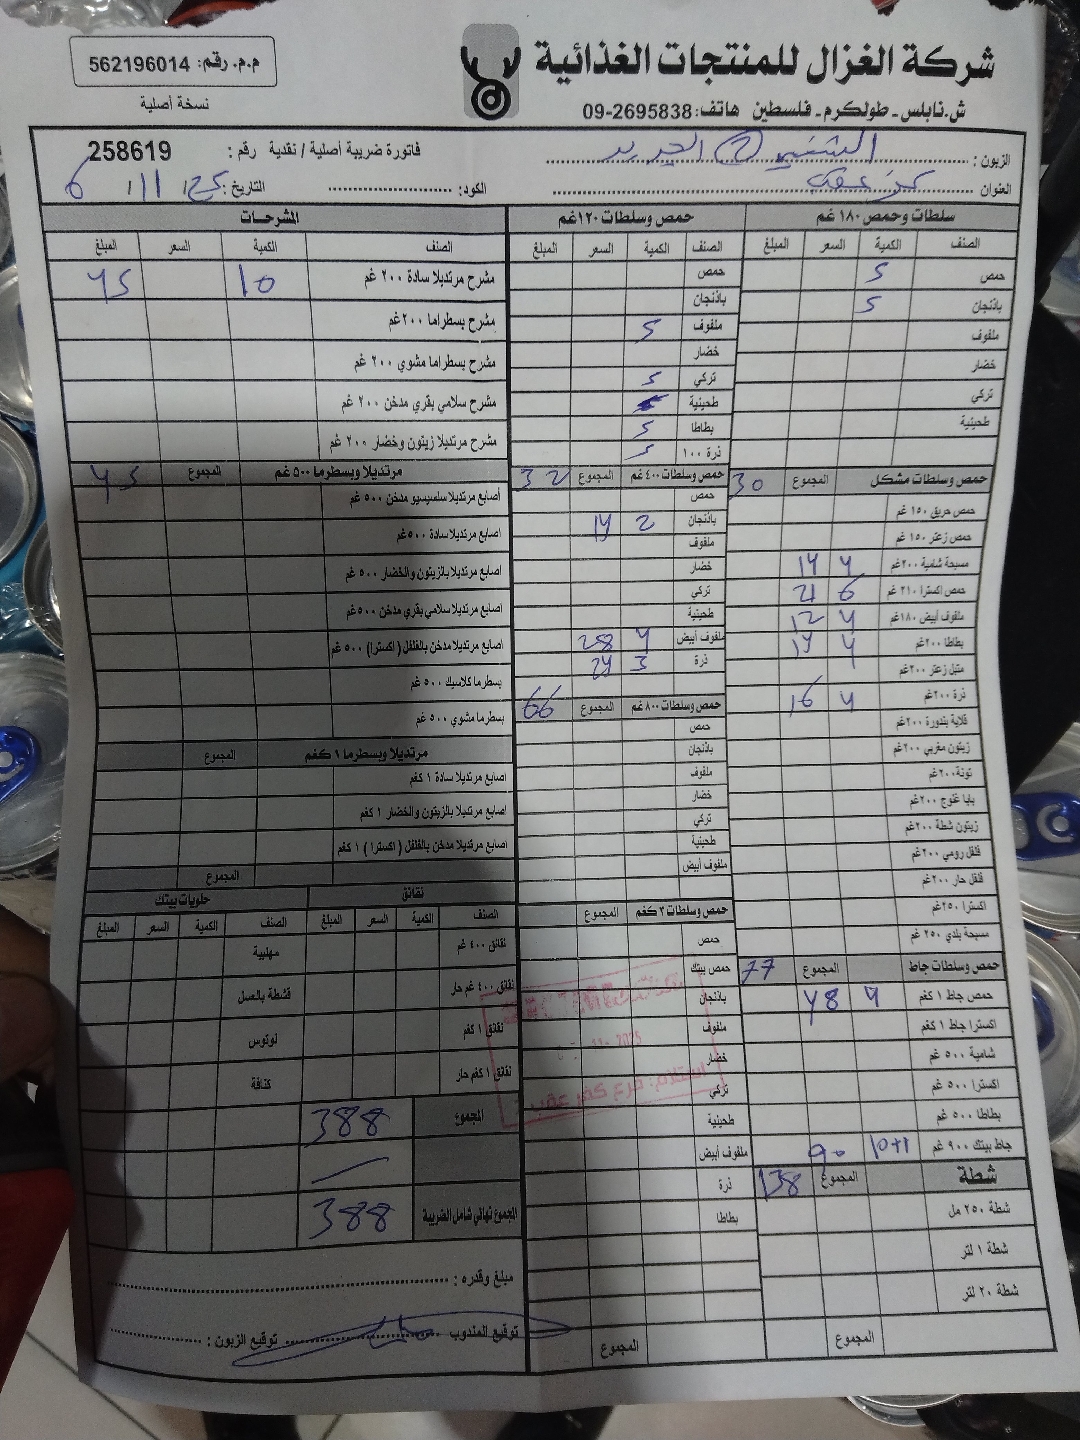 شركة الغزال للمنتجات الغذائية
ش.نابلس - طولكرم - فلسطين هاتف: 2695838-09
م.م. رقم: 562196014
نسخة أصلية
الزبون:
فاتورة ضريبة أصلية / نقدية رقم: 258619
العنوان
الكود:
التاريخ: 25/11/ 6
سلطات وحمص ١٨٠ غم
الصنف الكمية السعر المبلغ
حمص 5
باذنجان 5
ملفوف
خضار
تركي
طحينية
حمص وسلطات مشكل المجموع 30
حمص حريق ١٥٠ غم
حمص زعتر ١٥٠ غم
مسبحة شامية ٢٠٠غم 4 14
حمص اكسترا ٢١٠ غم 6 21
ملفوف أبيض ١٨٠غم 4 12
بطاطا ٢٠٠غم 4 14
متبل زعتر ٢٠٠غم
ذرة ٢٠٠غم 4 16
قلاية بندورة ٢٠٠غم
زيتون مغربي ٢٠٠غم
تونة ٢٠٠غم
بابا غنوج ٢٠٠غم
زيتون شطة ٢٠٠غم
فلفل رومي ٢٠٠غم
فلفل حار ٢٠٠غم
اكسترا ٢٥٠غم
مسبحة بلدي ٢٥٠ غم
حمص وسلطات جاط المجموع 77
حمص جاط ١ كغم 4 48
اكسترا جاط ١ كغم
شامية ٥٠٠ غم
اكسترا ٥٠٠ غم
بطاطا ٥٠٠ غم
جاط بيتك ٩٠٠ غم 10+1 90
شطة المجموع 138
شطة ٢٥٠ مل
شطة ١ لتر
شطة ٢٠ لتر
المجموع
حمص وسلطات ١٢٠غم
الصنف الكمية السعر المبلغ
حمص
باذنجان
ملفوف 5
خضار
تركي 5
طحينية
بطاطا 5
ذرة ١٠٠ 5
حمص وسلطات ٤٠٠ غم المجموع 32
حمص
باذنجان 2 14
ملفوف
خضار
تركي
طحينية
ملفوف أبيض 4 28
ذرة 3 24
حمص وسلطات ٨٠٠ غم المجموع 66
حمص
باذنجان
ملفوف
خضار
تركي
طحينية
ملفوف أبيض
حمص وسلطات ٣ كغم المجموع
حمص
حمص بيتك
باذنجان
ملفوف
خضار
تركي
طحينية
ملفوف أبيض
ذرة
بطاطا
المجموع
المشرحات
الصنف الكمية السعر المبلغ
مشرح مرتديلا سادة ٢٠٠ غم 10 45
مشرح بسطراما ٢٠٠غم
مشرح بسطراما مشوي ٢٠٠ غم
مشرح سلامي بقري مدخن ٢٠٠ غم
مشرح مرتديلا زيتون وخضار ٢٠٠ غم
مرتديلا وبسطرما ٥٠٠ غم المجموع 45
أصابع مرتديلا سلسيسيو مدخن ٥٠٠ غم
اصابع مرتديلا سادة ٥٠٠غم
اصابع مرتديلا بالزيتون والخضار ٥٠٠ غم
اصابع مرتديلا سلامي بقري مدخن ٥٠٠غم
اصابع مرتديلا مدخن بالفلفل ( اكسترا) ٥٠٠ غم
بسطرما كلاسيك ٥٠٠ غم
بسطرما مشوي ٥٠٠ غم
مرتديلا وبسطرما ١ كغم المجموع
اصابع مرتديلا سادة ١ كغم
اصابع مرتديلا بالزيتون والخضار ١ كغم
اصابع مرتديلا مدخن بالفلفل ( اكسترا ) ١ كغم
المجموع
نقانق
حلويات بيتك
الصنف الكمية السعر المبلغ
الصنف الكمية السعر المبلغ
نقانق ٤٠٠ غم
مهلبية
نقانق ٤٠٠ غم حار
قشطة بالعسل
نقانق ١ كغم
لوتوس
نقانق ١ كغم حار
كنافة
المجموع 388
المجموع نهائي شامل الضريبة 388
مبلغ وقدره :
توقيع المندوب
توقيع الزبون :
استلام: فرع كفر عقب